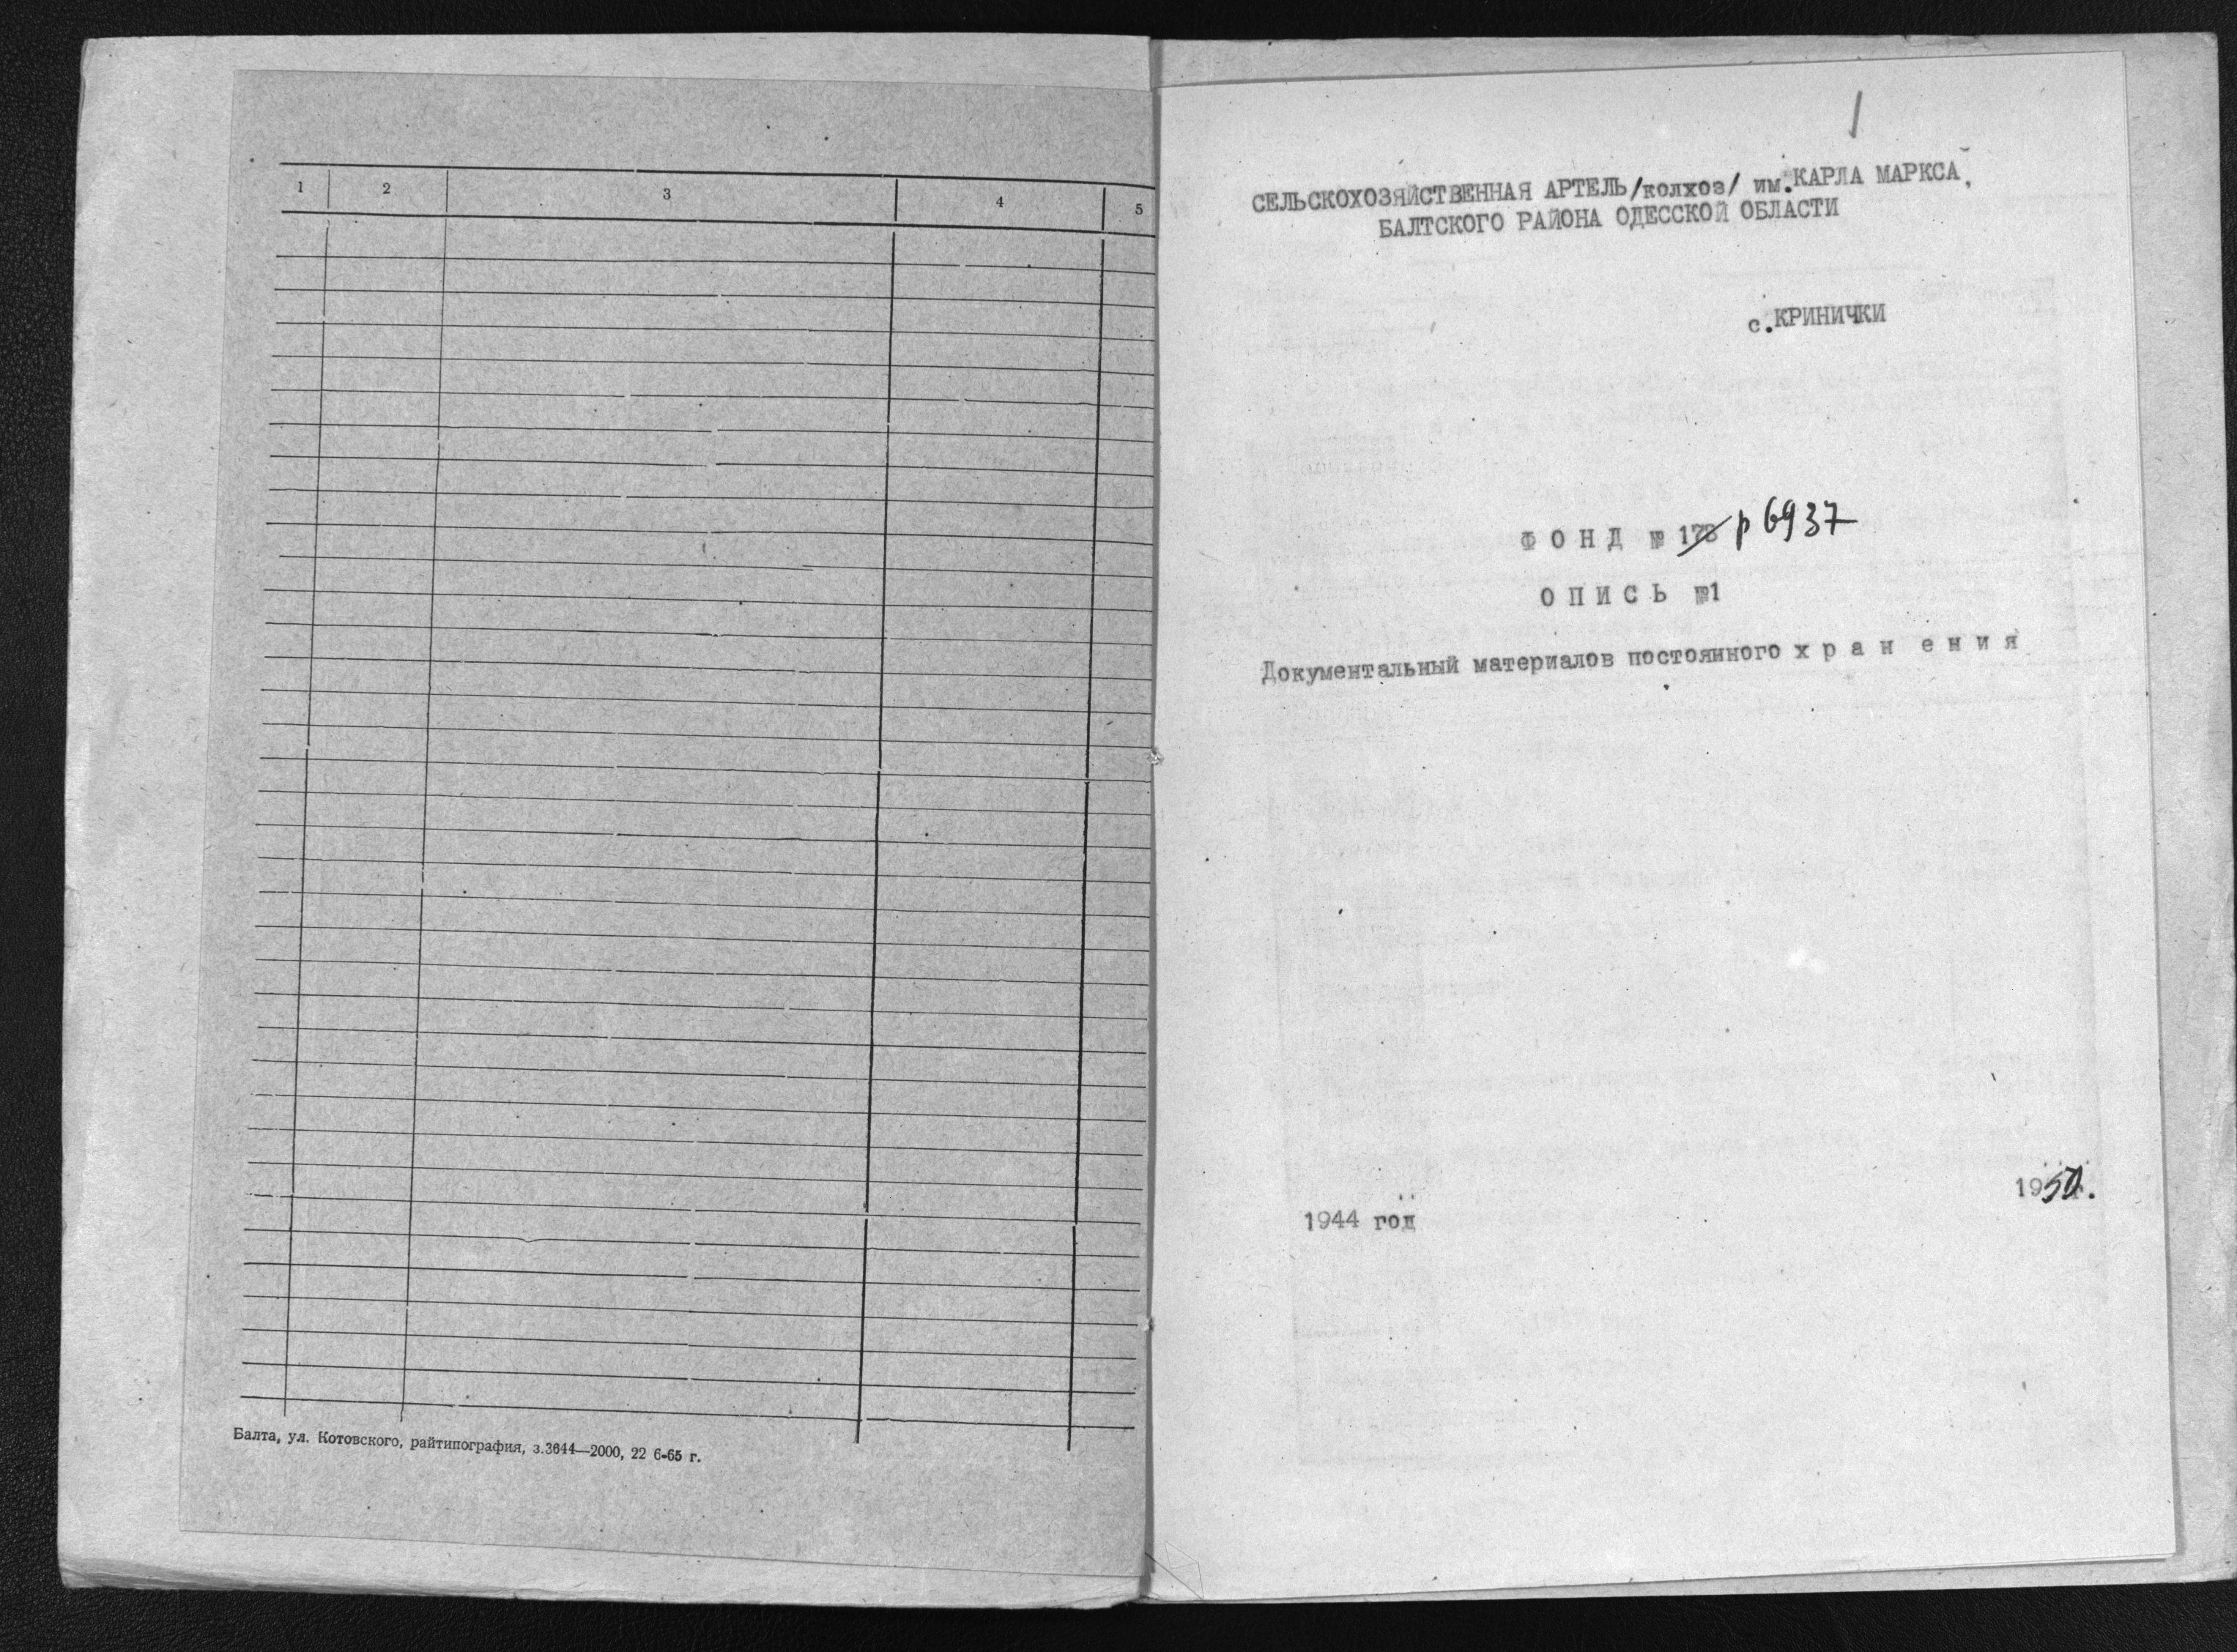 1 2 3 4 5
Балта, ул. Котовского, райтипография, з.3644—2000, 22 6-65 г.
1
СЕЛЬСКОХОЗЯЙСТВЕННАЯ АРТЕЛЬ/колхоз/ им.КАРЛА МАРКСА,
БАЛТСКОГО РАЙОНА ОДЕССКОЙ ОБЛАСТИ
с.КРИНИЧКИ
Ф О Н Д № 173 р 6937
О П И С Ь №1
Документальный материалов постоянного х р а н е н и я
1950.
1944 год